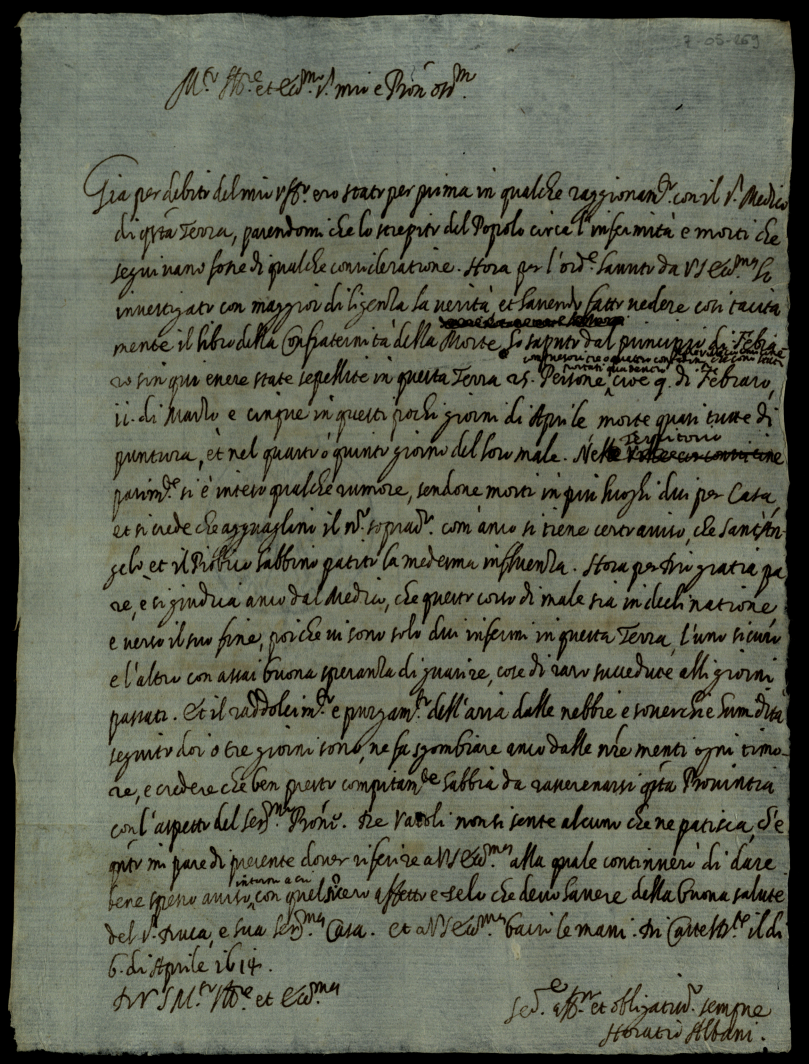 7-05-269
M.to Ill.re et Ecc.mo S.r mio e P̃rõn oss.mo
Gia per debito del mio uff.o ero stato per prima in qualche raggionam.to con il S.r Medico
di q̃sta Terra, parendomi che lo strepito del Popolo circa l'infermità e morti che
seguivano fosse di qualche consideratione. Hora per l'ord.e havuto da VS Ecc.ma ho
investigato con maggior diligenza la verità, et havendo fatto vedere cosi tacita
mente il libro della Confraternità della Morte, ho saputo dal principio di Febra-
ro sin qui essere state sepellite in questa Terra 25. Persone, cioe 9. di Febraro,
compresovi tre o quattro
portati
ii. di Marzo e cinque in questi pochi giorni di Aprile morte quasi tutte di
puntura, et nel quarto ò quinto giorno del loro male. Nel Territorio
parim.te si è inteso qualche rumore, sendone morti in più luoghi dui per Casa,
et si crede che agguaglino il n.ro soprad.o com'anco si tiene certo aviso, che Sant'An-
gelo et il Piobbico habbino patito la medesma influenza. Hora per Dio gratia pa
re, e si giudica anco dal Medico, che questo corso di male sia in declinatione
e verso il suo fine, poiche vi sono solo dui infermi in questa Terra, l'uno sicuro
e l'altro con assai buona speranza di guarire, cose di raro succedute alli giorni
passati. Et il raddolcim.to e purgam.to dell'aria dalle nebbie e soverchie humidità
seguito doi o tre giorni sono, ne fa sgombrare anco dalle n̅re menti ogni timo-
re, e credere che ben presto compitam.te habbia da rasserenarsi q̃sta Provintia
con l'aspetto del Ser.mo P̃rõne. De Vaoli non si sente alcuno che ne patisca, ch'è
q̃nto mi pare di presente dover riferire a VS Ecc.ma alla quale continuerò di dare
bene spesso aviso, intorno a cio con quel sincero affetto e zelo che devo havere della buona salute
del S.r Duca, e sua Ser.ma Casa. et a VS Ecc.ma bacio le mani. Di il di
6. di Aprile 1614.
Di V S M.to Ill.re et Ecc.ma
Ser.e aff.mo et obligatiss.o sempre
Horatio Albani.